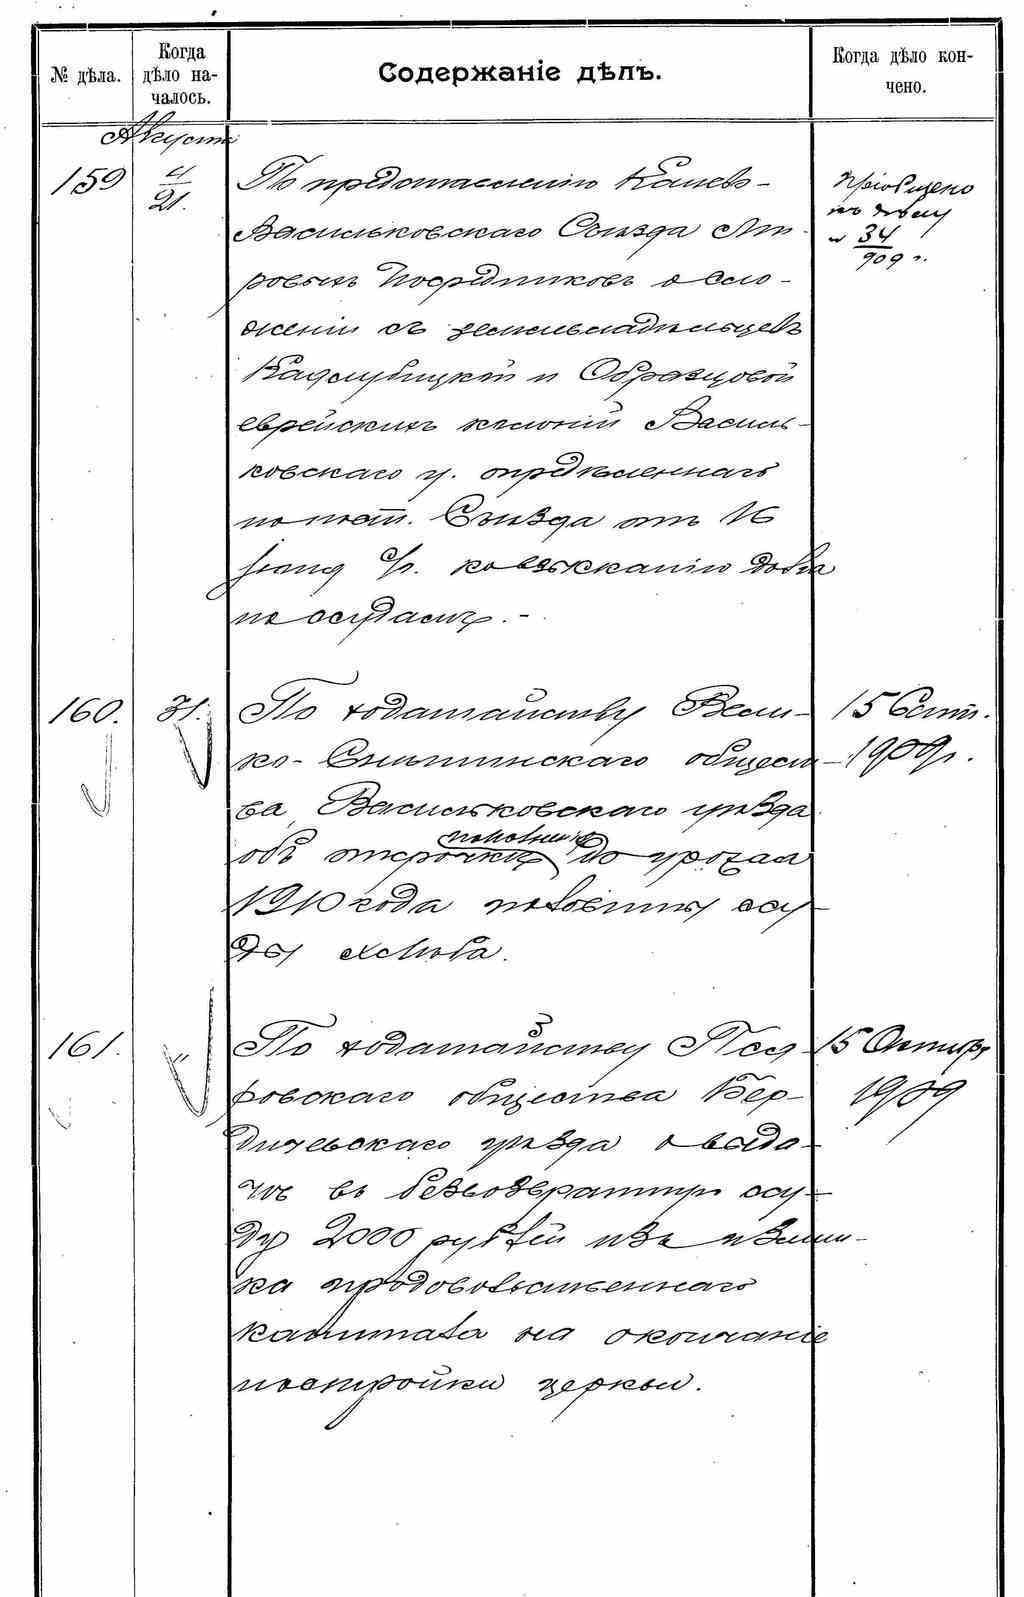 № дѣла.
Когда
дѣло на-
чалось.
Содержаніе дѣлъ.
Когда дѣло кон-
чено.
Августа
159
4/21.
По представленію Канево-
Васильковскаго Съѣзда Ми-
ровыхъ Посредниковъ о сло-
женіи съ землевладѣльцевъ
Кадлубицкой и Образцовой
еврейскихъ колоній Василь-
ковскаго у. опредѣленнаго
по пост. Съѣзда отъ 16
Іюня с/г. ко взысканію долга
по ссудамъ. -
Пріобщено
къ дѣлу
№ 34/909 г.
160.
31.
По ходатайству Вели-
ко-Снытинскаго общест-
ва, Васильковскаго уѣзда
объ отсрочкѣ половины до урожая
1910 года половины ссу-
ды хлѣба.
15 Сент.
1909 г.
161.
"
По ходатайству
ровскаго общества Бер-
дичевскаго уѣзда о выда-
чѣ въ безвозвратную ссу-
ду 2000 рублей изъ излиш-
ка продовольственнаго
капитала на окончаніе
постройки церкви.
15 Октября
1909